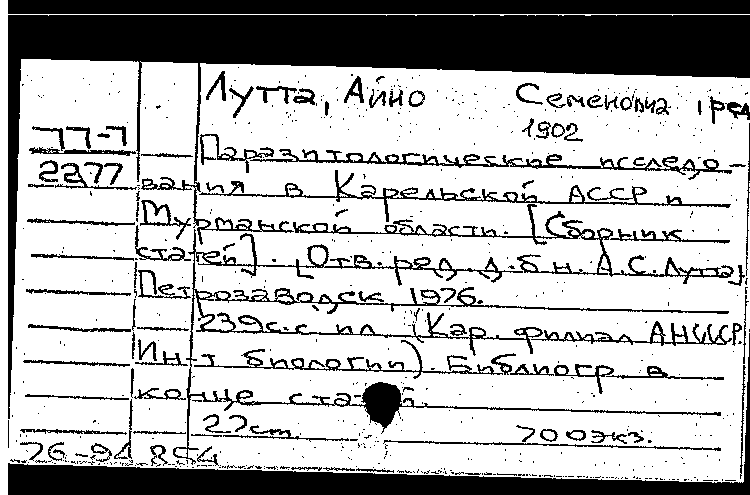 Лутта, Айно Семеновна, ред
1902
77-7
2277
Паразитологические исследо-
вания в Карельской АССР и
Мурманской области. [Сборник
статей]. [Отв. ред. д.б.н. А.С. Лутта]
Петрозаводск, 1976.
239с. с ил. (Кар. филиал АН СССР.
Ин-т биологии). Библиогр. в
конце статей.
22см. 700экз.
76-94854